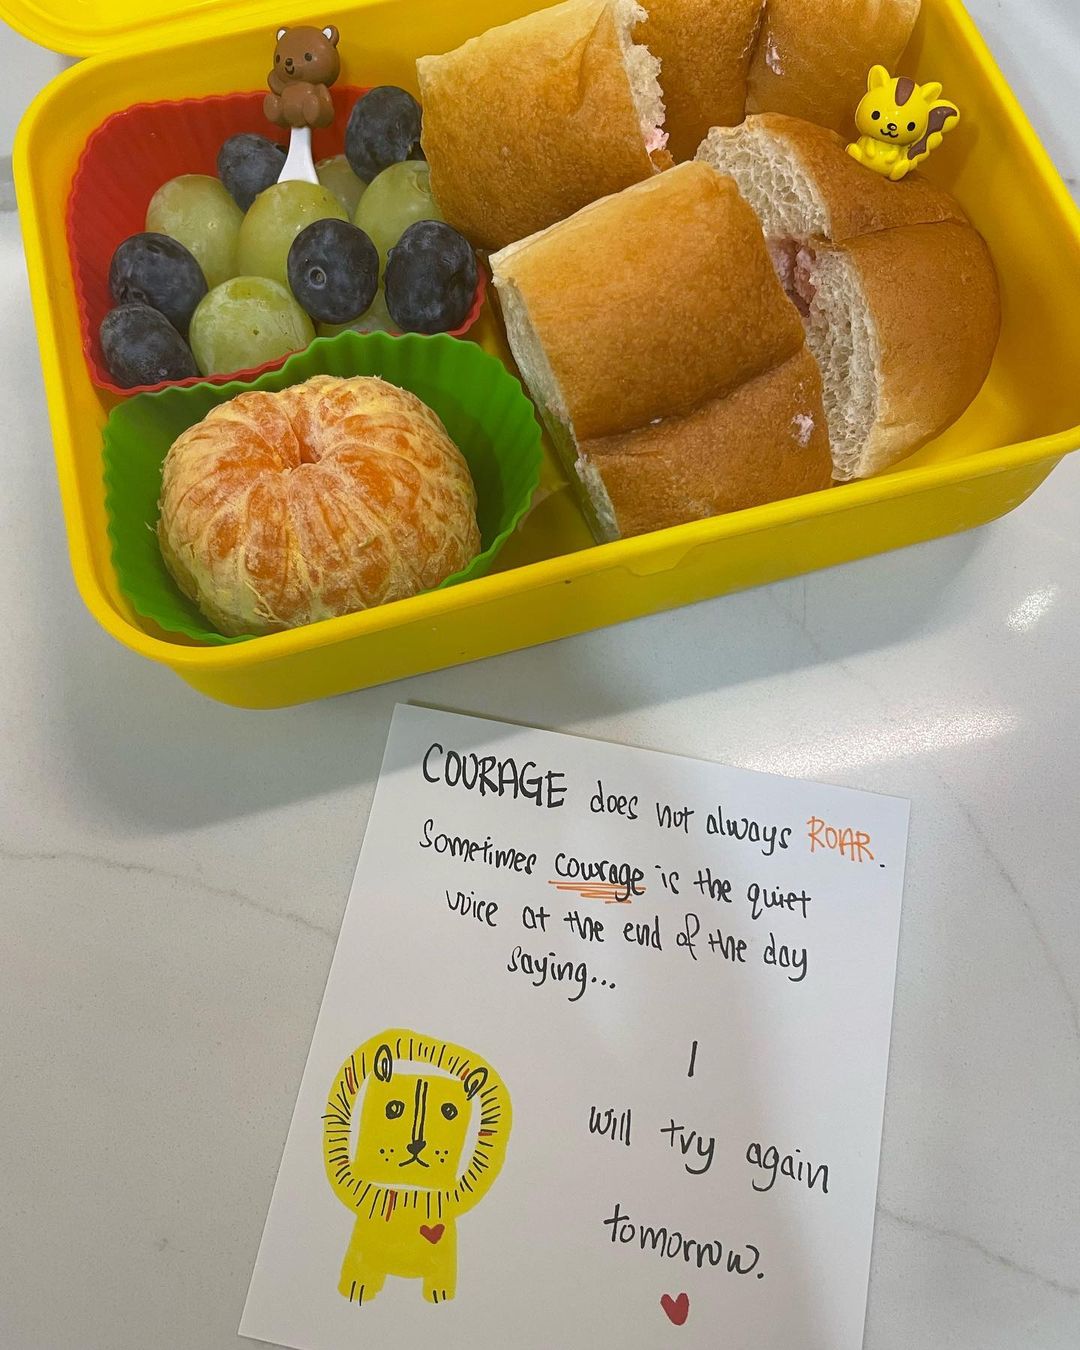 COURAGE does not always ROAR.
Sometimes courage is the quiet
voice at the end of the day
saying...
I
will try again
tomorrow.